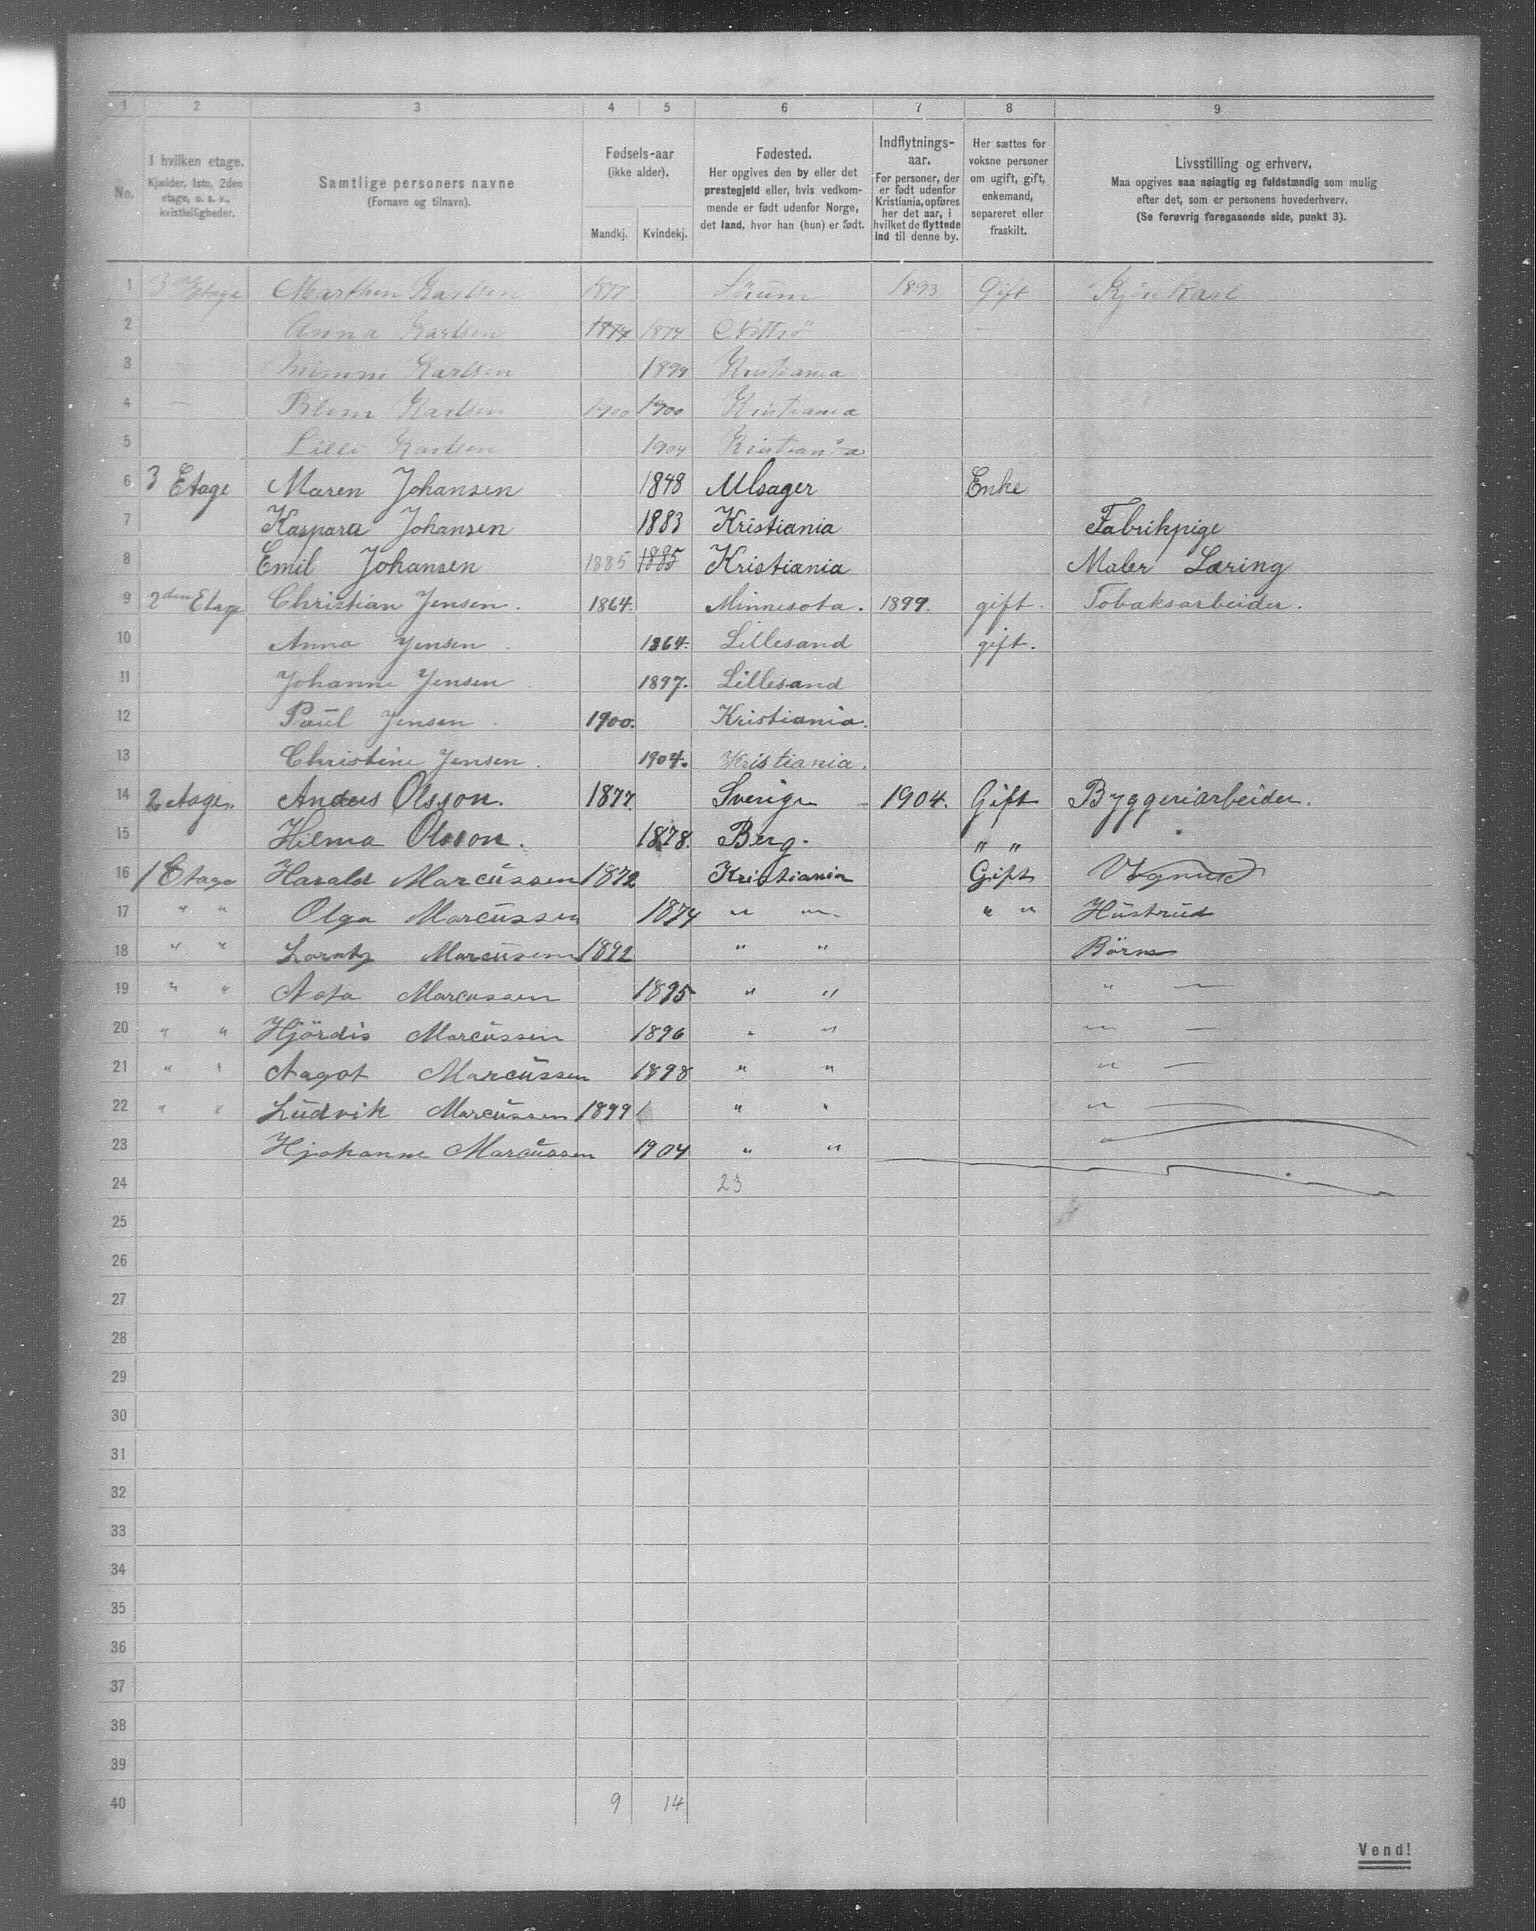 1 2 3 4 5 6 7 8 9
No.
I hvilken etage.
Kjælder, 1ste, 2den
etage, o. s. v.,
kvistleiligheder.
Samtlige personers navne
(Fornavn og tilnavn).
Fødsels-aar
(ikke alder).
Mandkj. Kvindekj.
Fødested.
Her opgives den by eller det
prestegjeld eller, hvis vedkom-
mende er født udenfor Norge,
det land, hvor han (hun) er født.
Indflytnings-
aar.
For personer, der
er født udenfor
Kristiania, opføres
her det aar, i
hvilket de flyttede
ind til denne by.
Her sættes for
voksne personer
om ugift, gift,
enkemand,
separeret eller
fraskilt.
Livsstilling og erhverv.
Maa opgives saa nøiagtig og fuldstændig som mulig
efter det, som er personens hovederhverv.
(Se forøvrig foregaaende side, punkt 3).
1 3 Etage Marthin Karlsen 1877 Sørum 1893 Gift
2 Anna Karlsen 1874 1874 Nøtterø
3 Karlsen 1899 Kristiania
4 Karlsen 1900 1900 Kristiania
5 Lilli Karlsen 1904 Kristiania
6 3 Etage Maren Johansen 1848 Ulsager Enke
7 Kaspara Johansen 1883 Kristiania Fabrikpige
8 Emil Johansen 1885 1885 Kristiania Maler Læring
9 2den Etage Christian Jensen. 1864. Minnesota. 1899. gift. Tobaksarbeider.
10 Anna Jensen. 1864. Lillesand gift.
11 Johanne Jensen 1897. Lillesand
12 Paul Jensen. 1900. Kristiania.
13 Christine Jensen. 1904. Kristiania.
14 2 Etage. Anders Olsson. 1877. Sverige 1904. Gift Byggeriarbeider.
15 Hilma Olsson. 1878. Berg. " "
16 1 Etage Harald Marcussen 1872 Kristiania Gift
17 " " Olga Marcussen 1874 " " " " Hustrud
18 " " Lorntz Marcussen 1892 " " Börn
19 " " Asta Marcussen 1895 " " "
20 " " Hjördis Marcussen 1896 " " "
21 " " Aagot Marcussen 1898 " " "
22 " " Ludvik Marcussen 1899 " " "
23 Hjohanne Marcussen 1904 " " "
24 23
25
26
27
28
29
30
31
32
33
34
35
36
37
38
39
40 9 14
Vend!